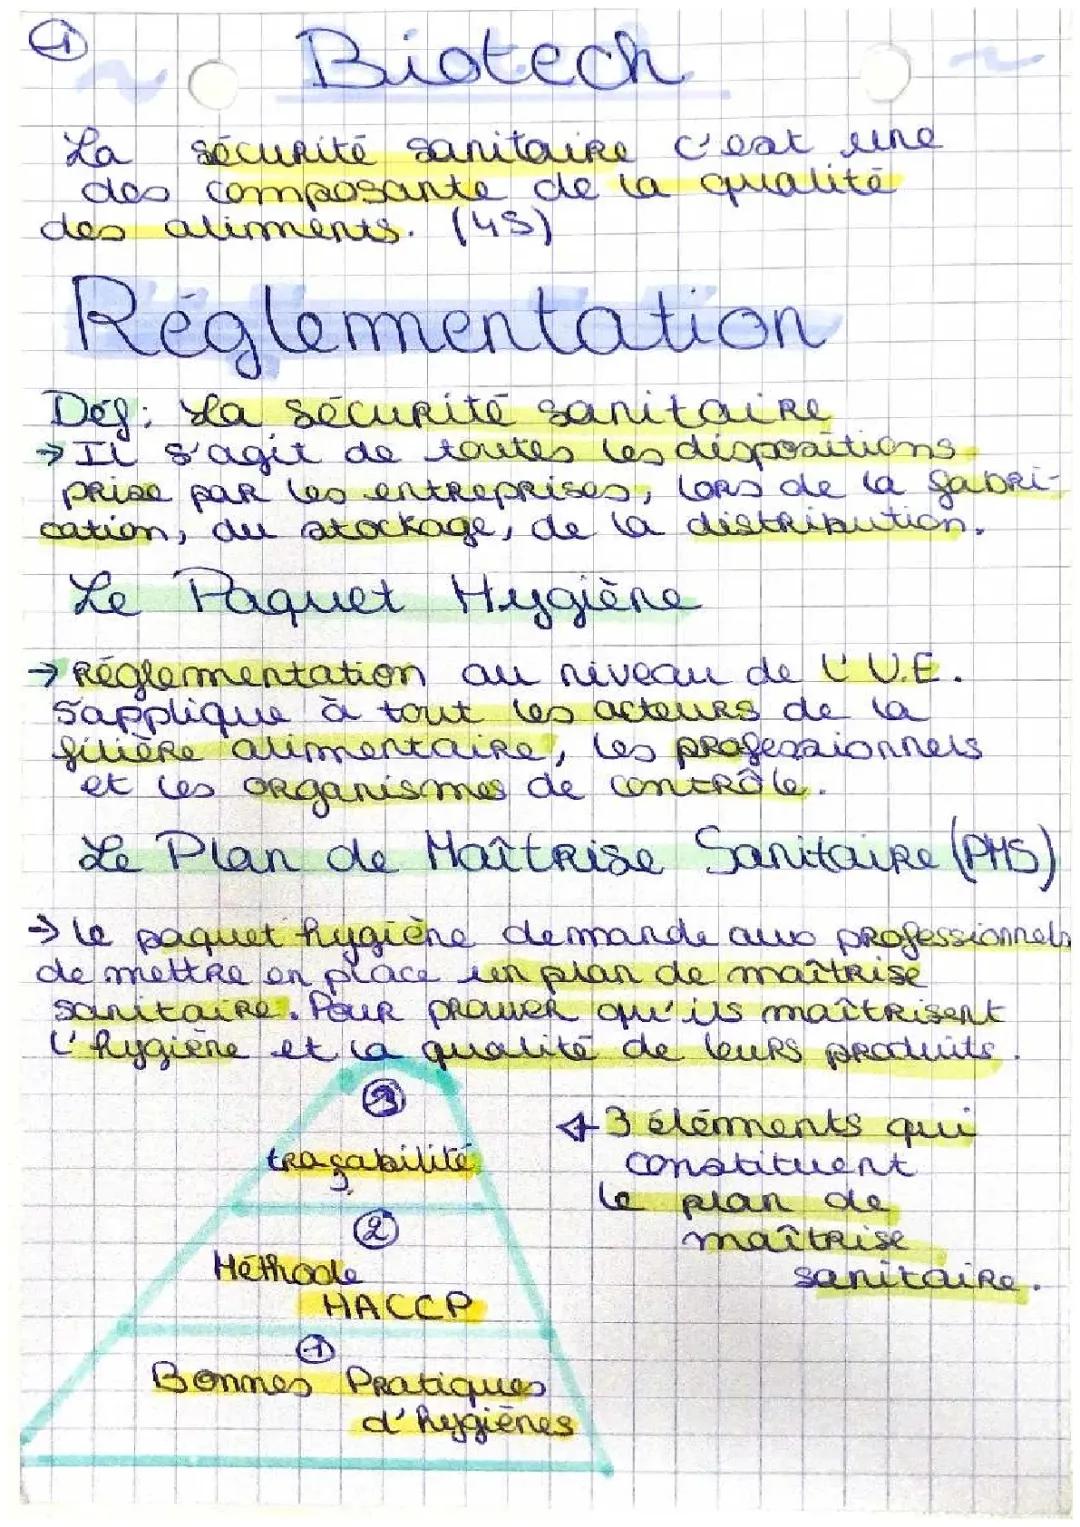 1
Biotech
La sécurité sanitaire c'est une
des composante de la qualité
des aliments. (4S)
Réglementation
Déf: La sécurité sanitaire
→ Il s'agit de toutes les dispositions
prise par les entreprises, lors de la fabri-
cation, du stockage, de la distribution.
Le Paquet Hygiène
→ Réglementation au niveau de l'U.E.
S'applique à tout les acteurs de la
filière alimentaire, les professionnels
et les organismes de contrôle.
Le Plan de Maîtrise Sanitaire (PMS)
→ le paquet hygiène demande aux professionnels
de mettre en place un plan de maîtrise
sanitaire. Pour prouver qu'ils maîtrisent
l'hygiène et la qualité de leurs produits.
3
traçabilité
2
Méthode
HACCP
1
Bonnes Pratiques
d'hygiènes
← 3 éléments qui
constituent
le plan de
maîtrise
sanitaire.